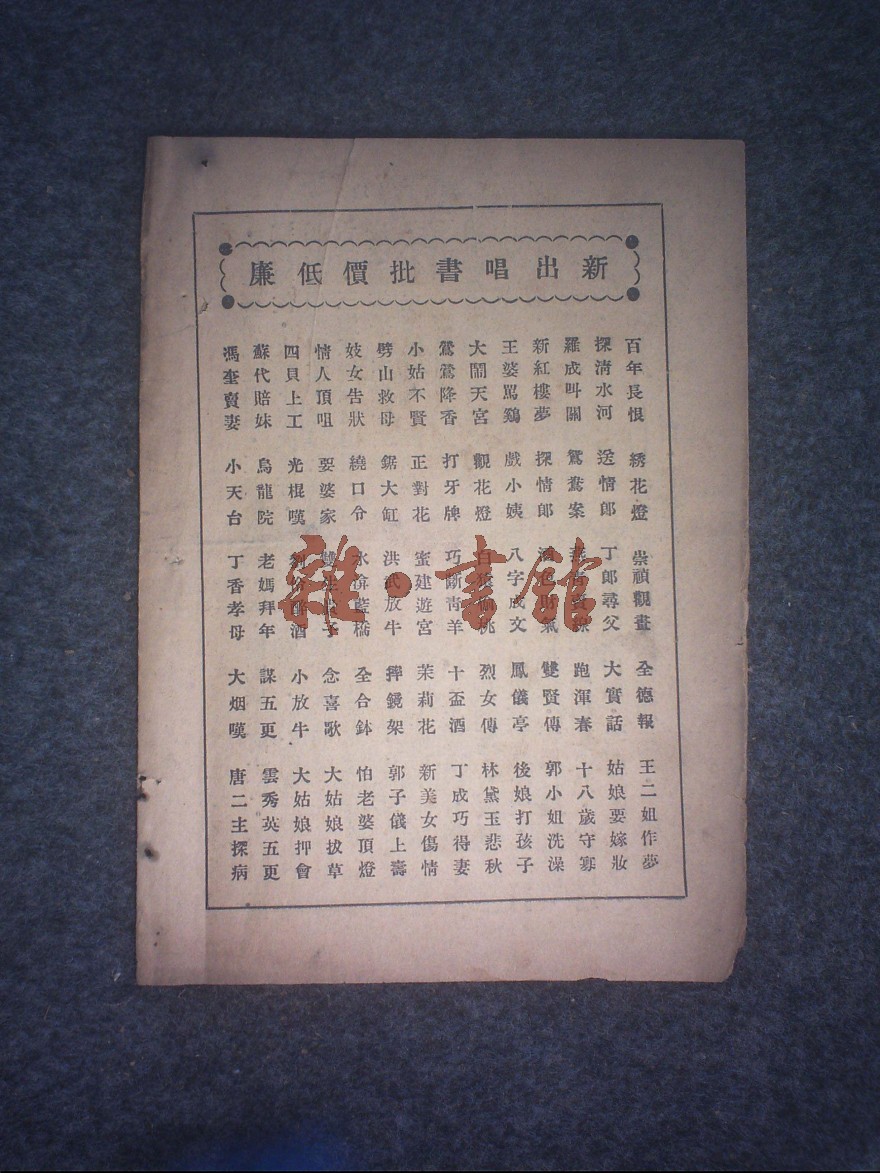 新出唱書批價低廉
百年長恨 綉花燈 崇禎觀畫 全德報 王二姐作夢
探清水河 送情郎 丁郎尋父 大實話 姑娘要嫁妝
羅成叫關 鴛鴦案 跑渾春 十八歲守寡
新紅樓夢 探情郎 酒色財氣 雙賢傳 郭小姐洗澡
王婆罵鷄 戲小姨 八字成文 鳳儀亭 後娘打孩子
大鬧天宮 觀花燈 白猿偷桃 烈女傳 林黛玉悲秋
鶯鶯降香 打牙牌 巧斷靑羊 十盃酒 丁成巧得妻
小姑不賢 正對花 蜜建遊宮 茉莉花 新美女傷情
劈山救母 鋸大缸 洪武放牛 摔鏡架 郭子儀上壽
妓女告狀 繞口令 水渰藍橋 全合鉢 怕老婆頂燈
情人頂咀 要婆家 念喜歌 大姑娘拔草
四貝上工 光棍嘆 劉伶醉酒 小放牛 大姑娘押會
蘇代賠妹 烏龍院 老媽拜年 謀五更 雲秀英五更
馮奎賣妻 小天台 丁香孝母 大烟嘆 唐二主探病
雜·書館